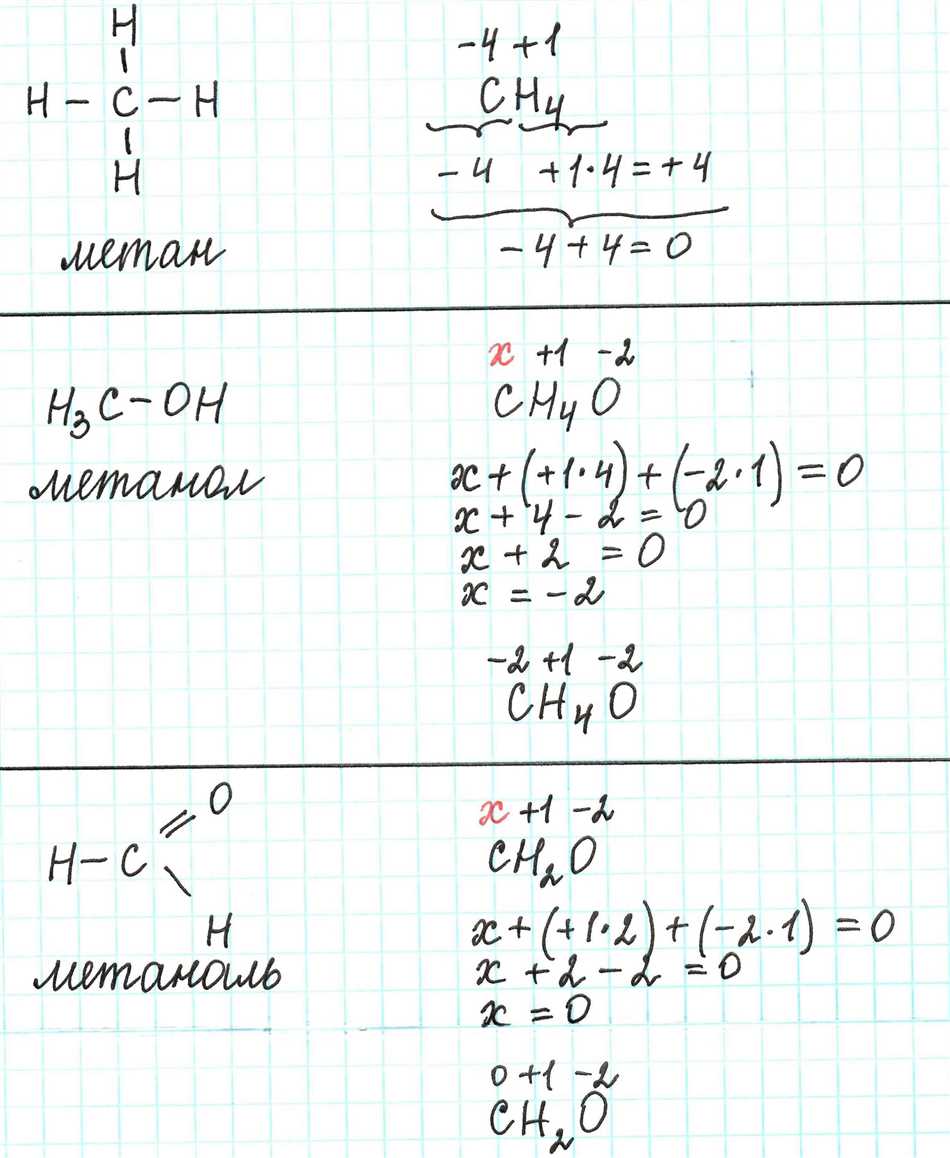 H
H – C – H
H
метан
-4 +1
CH₄
-4 +1·4=+4
-4+4=0
H₃C-OH
метанол
x +1 -2
CH₄O
x+(+1·4)+(-2·1)=0
x+4-2=0
x+2=0
x=-2
-2 +1 -2
CH₄O
O
H-C
H
метаналь
x +1 -2
CH₂O
x+(+1·2)+(-2·1)=0
x+2-2=0
x=0
0 +1 -2
CH₂O